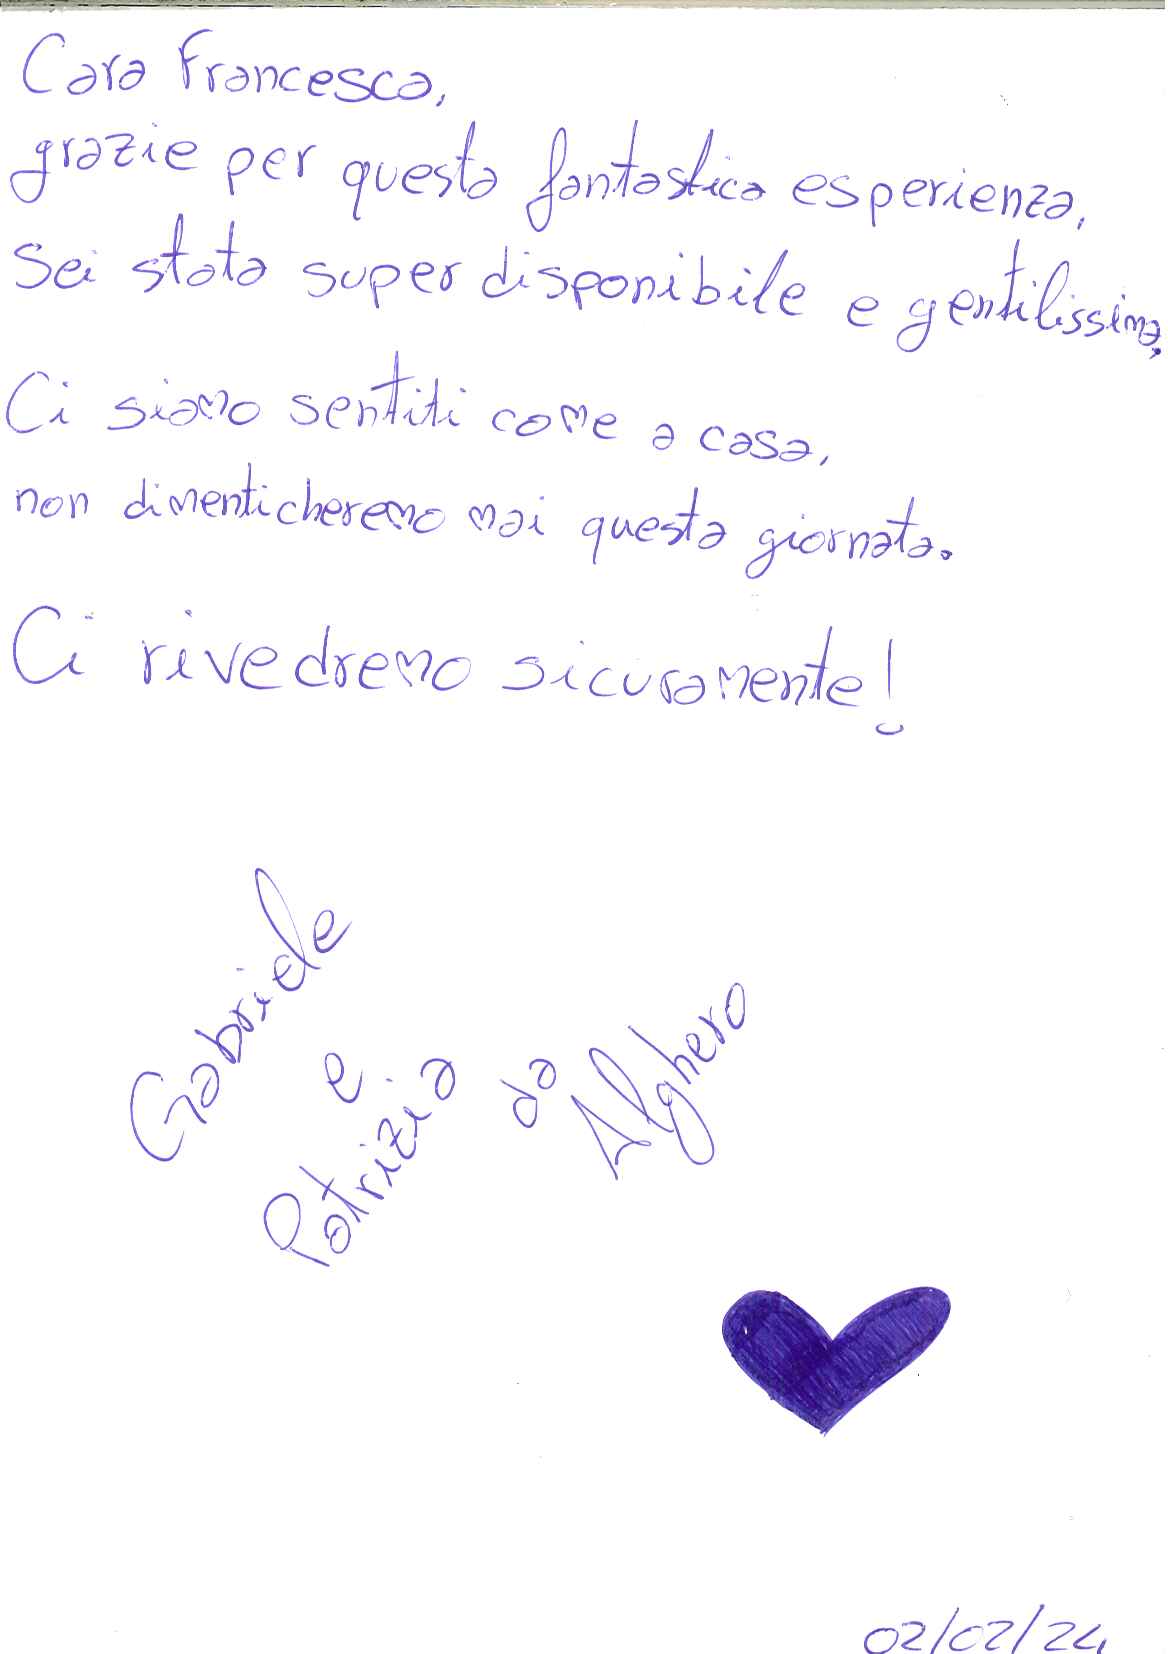 Cara Francesca,
grazie per questa fantastica esperienza,
Sei stata super disponibile e gentilissima.
Ci siamo sentiti come a casa,
non dimenticheremo mai questa giornata.
Ci rivedremo sicuramente!
Gabriele
e
Patrizia
da
Alghero
02/02/24